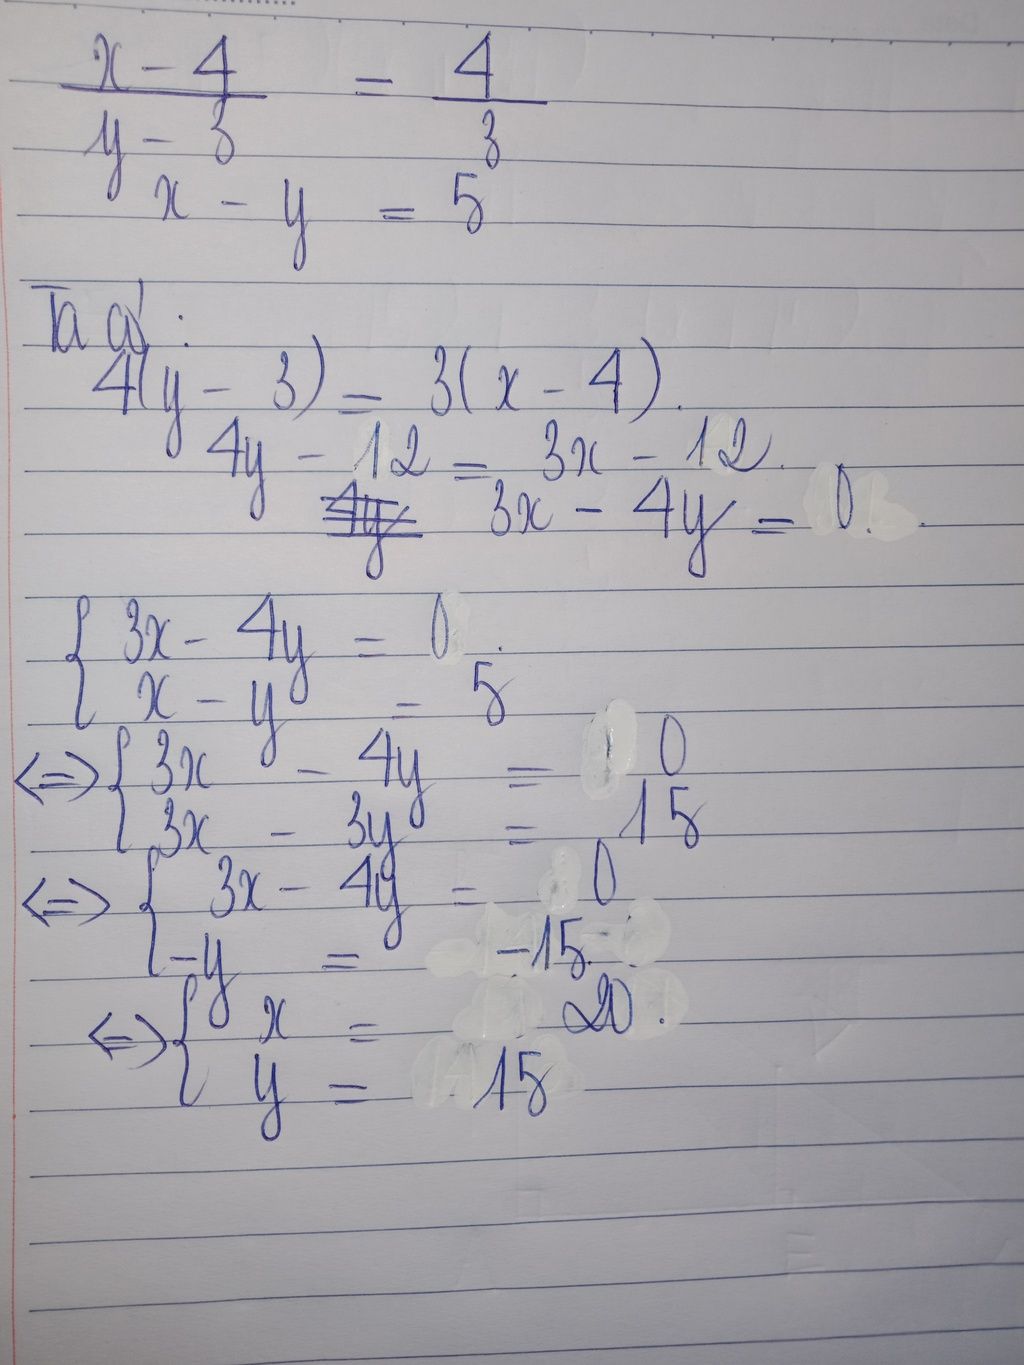 x - 4 / y - 3 = 4 / 3
x - y = 5
Ta có :
4(y - 3) = 3(x - 4).
4y - 12 = 3x - 12.
3x - 4y = 0.
{ 3x - 4y = 0.
x - y = 5
<=> { 3x - 4y = 0
3x - 3y = 15
<=> { 3x - 4y = 0
-y = -15.
<=> { x = 20.
y = 15